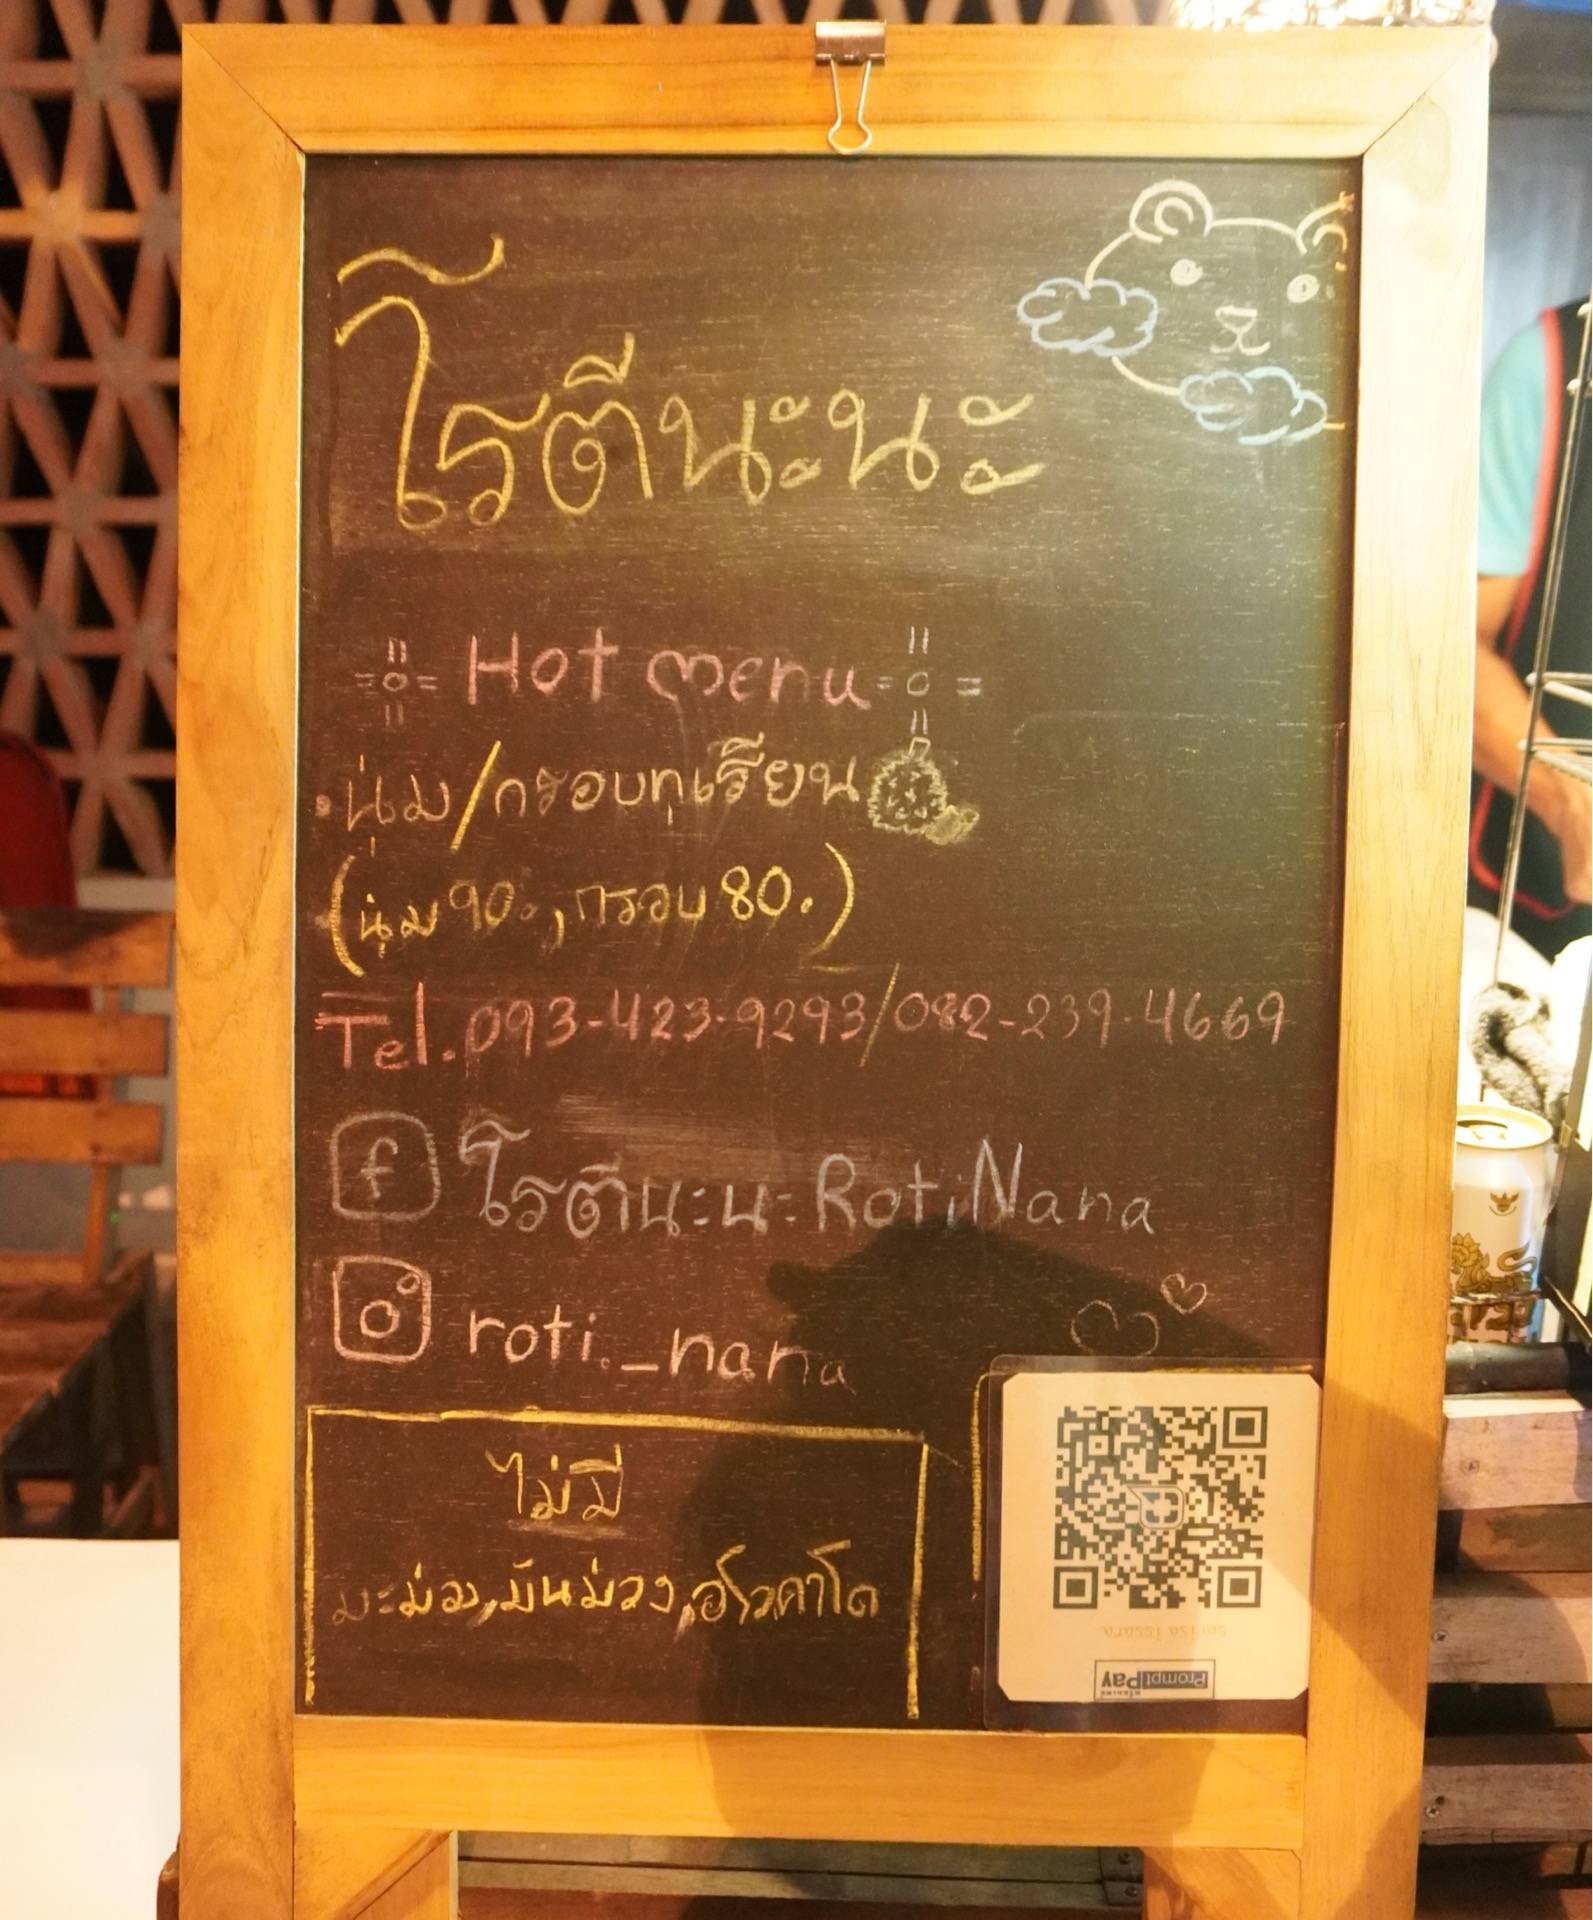 โรตีนะนะ
Hot menu
• นุ่ม/กรอบทุเรียน
(นุ่ม 90., กรอบ 80.)
Tel. 093-423-9293/082-239-4669
f โรตีนะนะ RotiNana
roti._nana
ไม่มี
มะม่วง, มันม่วง, อโวคาโด
Prompt Pay